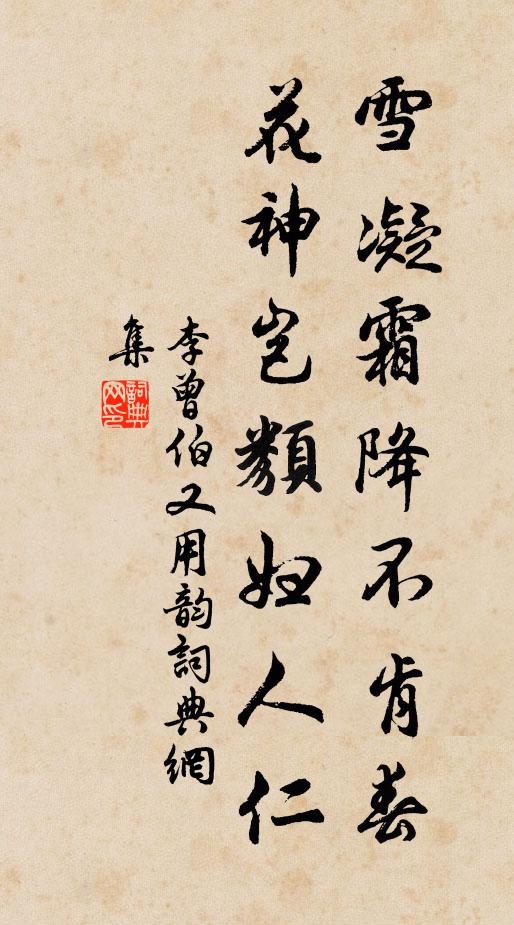 雪凝霜降不肯春
花神岂類妇人仁
李曾伯又用韵詞典網
集
詞典網印